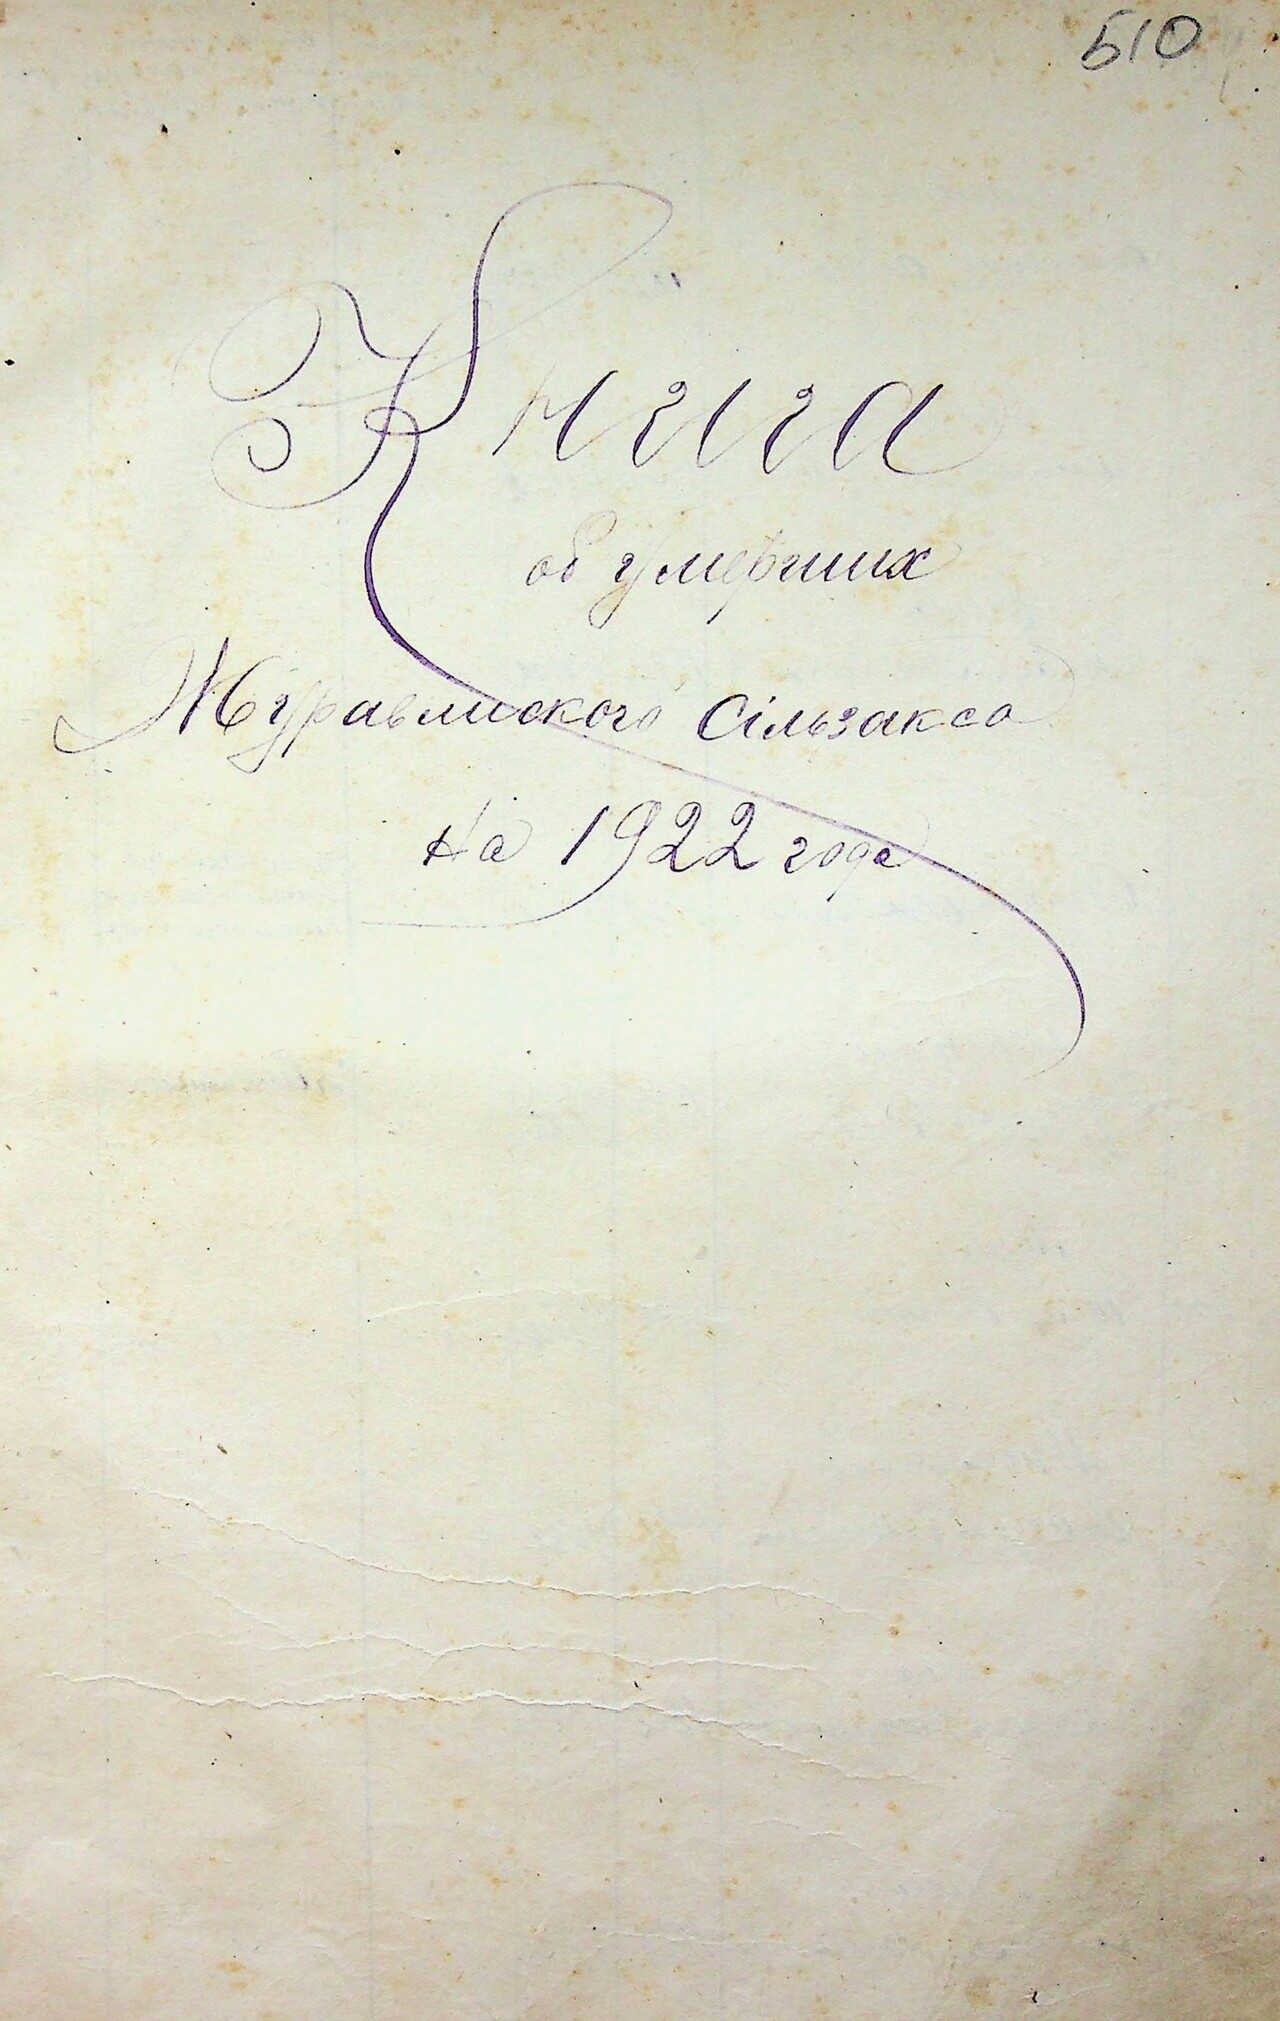 510
Книга
об умерших
Журавлиского Сільзакса
на 1922 года